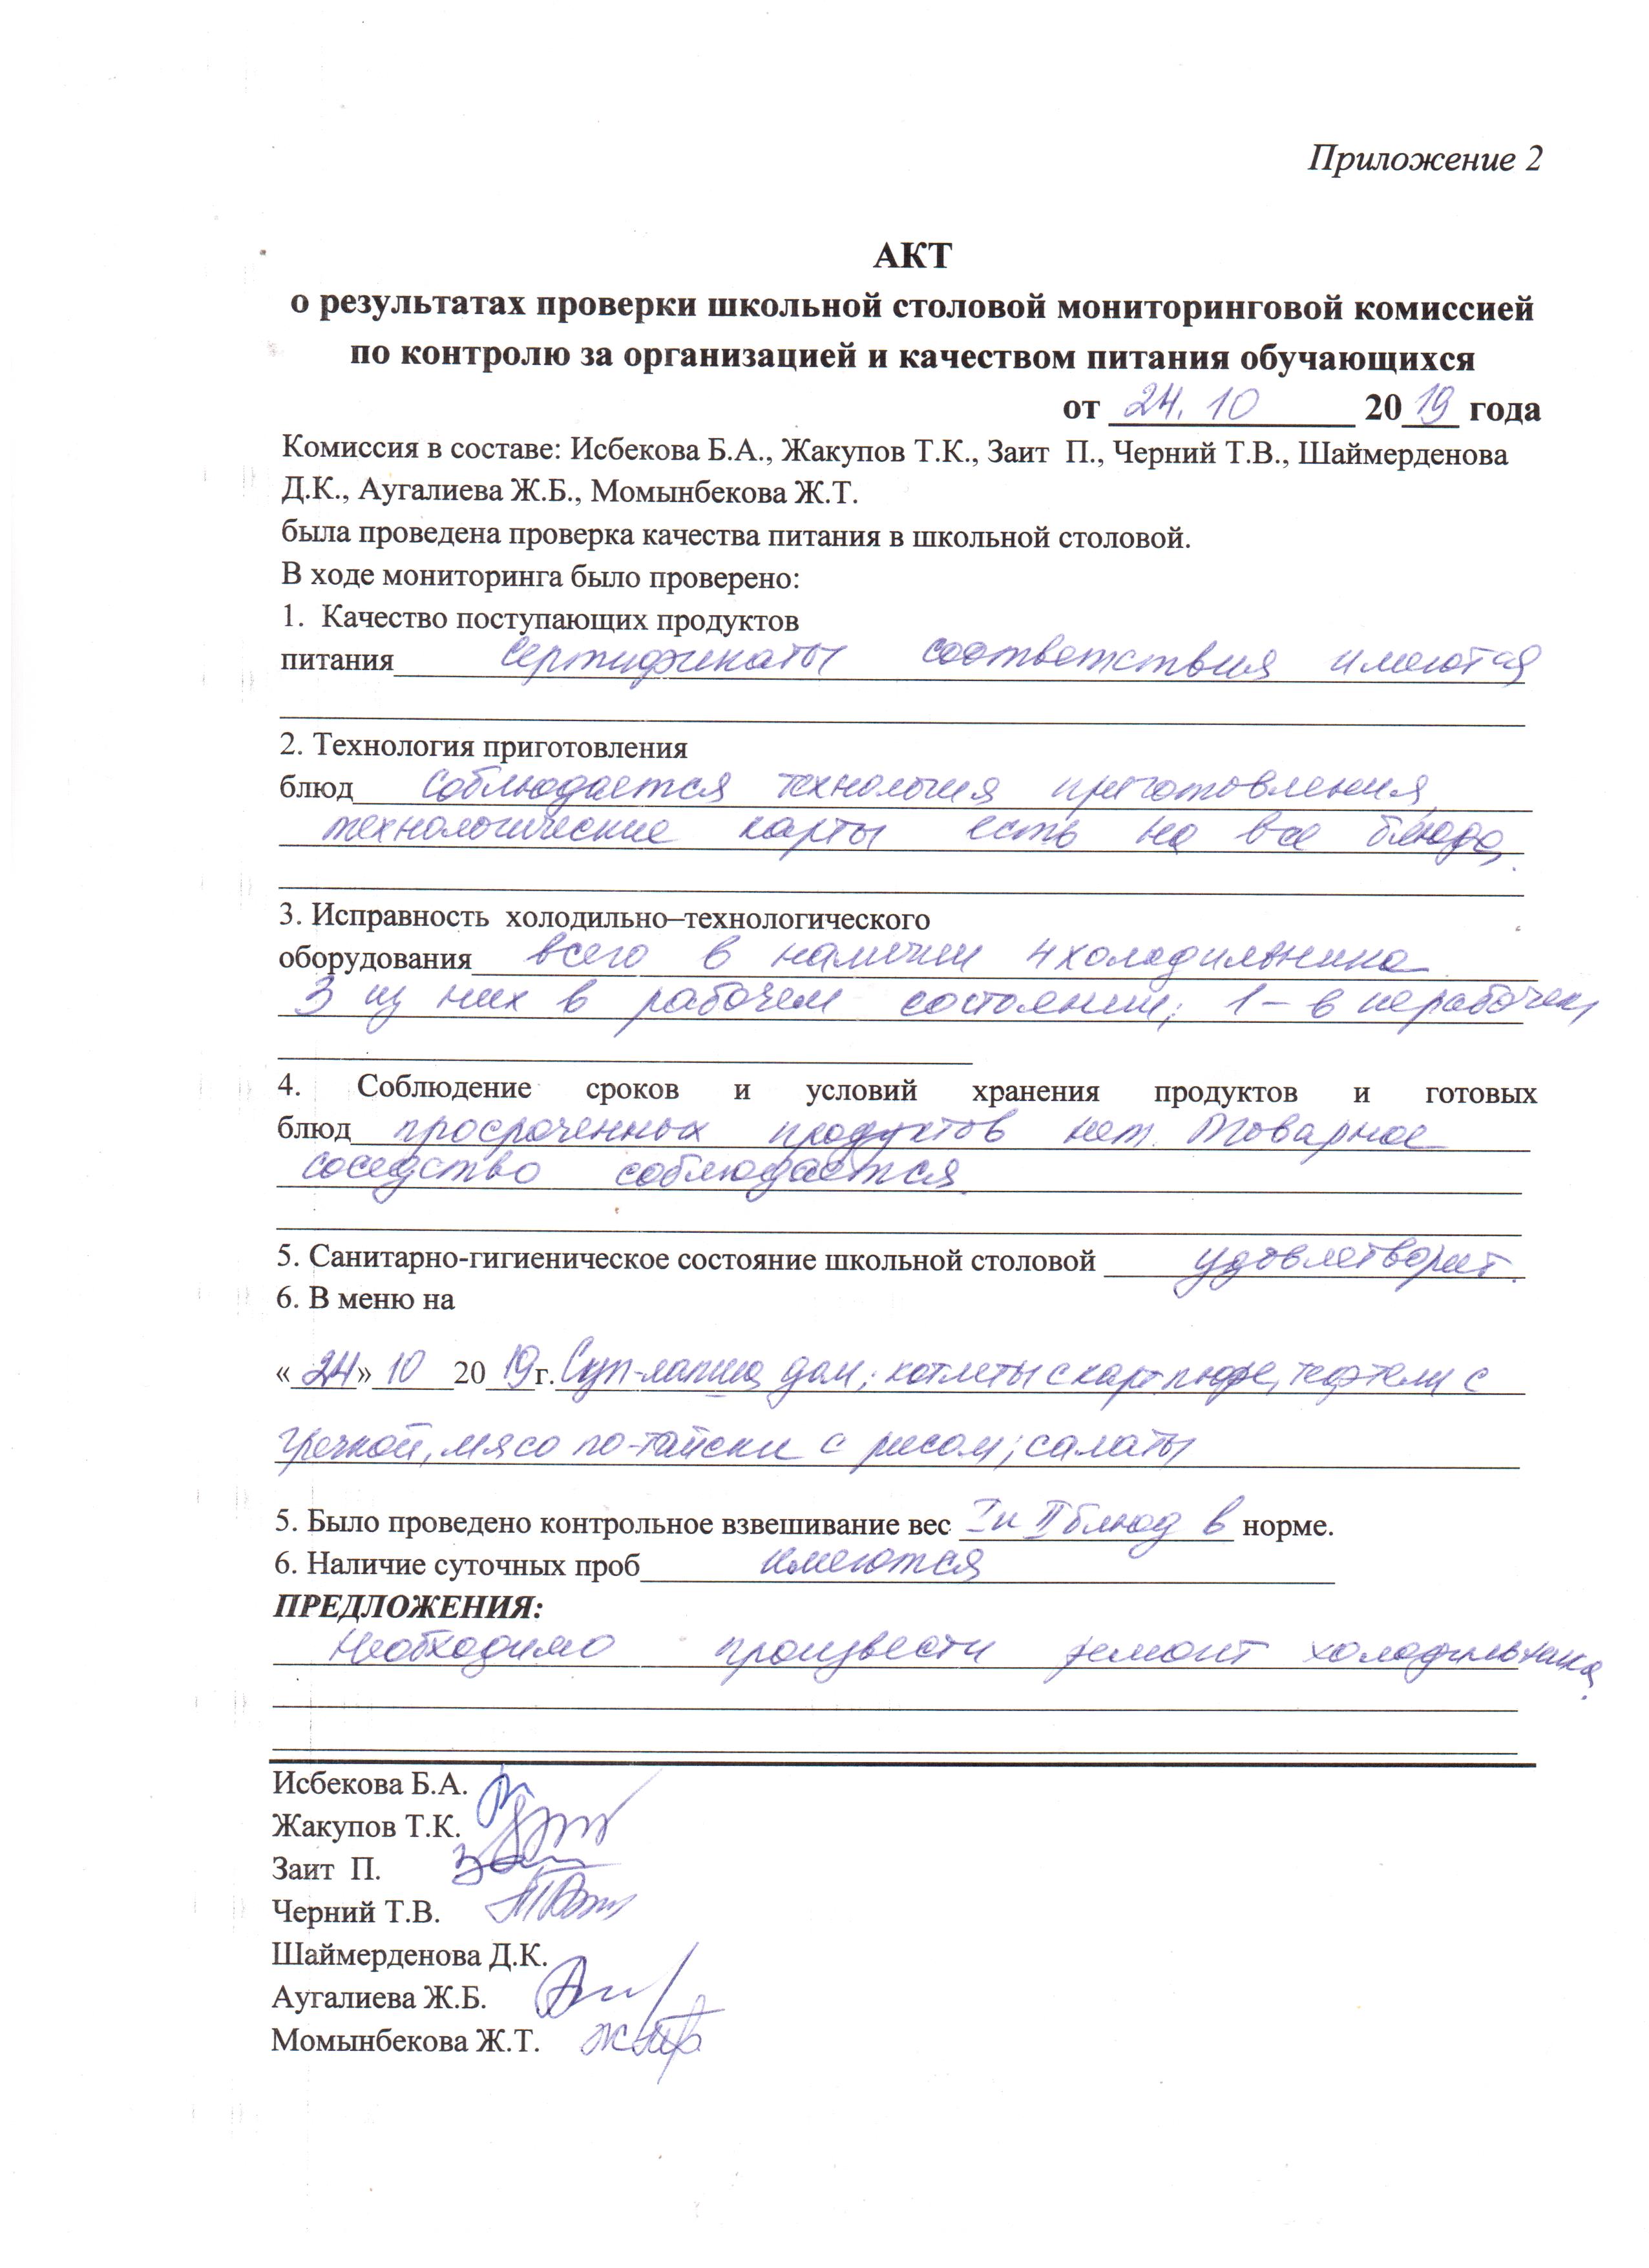 Приложение 2
АКТ
о результатах проверки школьной столовой мониторинговой комиссией
по контролю за организацией и качеством питания обучающихся
от 24.10 2019 года
Комиссия в составе: Исбекова Б.А., Жакупов Т.К., Заит П., Черний Т.В., Шаймерденова
Д.К., Аугалиева Ж.Б., Момынбекова Ж.Т.
была проведена проверка качества питания в школьной столовой.
В ходе мониторинга было проверено:
1. Качество поступающих продуктов
питания сертификаты соответствия имеются
2. Технология приготовления
блюд соблюдается технология приготовления,
технологические карты есть на все блюда.
3. Исправность холодильно–технологического
оборудования всего в наличии 4 холодильника
3 из них в рабочем состоянии; 1 – в нерабочем
4. Соблюдение сроков и условий хранения продуктов и готовых
блюд просроченных продуктов нет. Товарное
соседство соблюдается.
5. Санитарно-гигиеническое состояние школьной столовой удовлетворит.
6. В меню на
«24» 10 2019г. Суп-лапша дом; котлеты с карт пюре, тефтели с
гречкой, мясо по-тайски с рисом; салаты
5. Было проведено контрольное взвешивание вес I и II блюд в норме.
6. Наличие суточных проб имеются
ПРЕДЛОЖЕНИЯ:
Необходимо произвести ремонт холодильника.
Исбекова Б.А.
Жакупов Т.К.
Заит П.
Черний Т.В.
Шаймерденова Д.К.
Аугалиева Ж.Б.
Момынбекова Ж.Т.